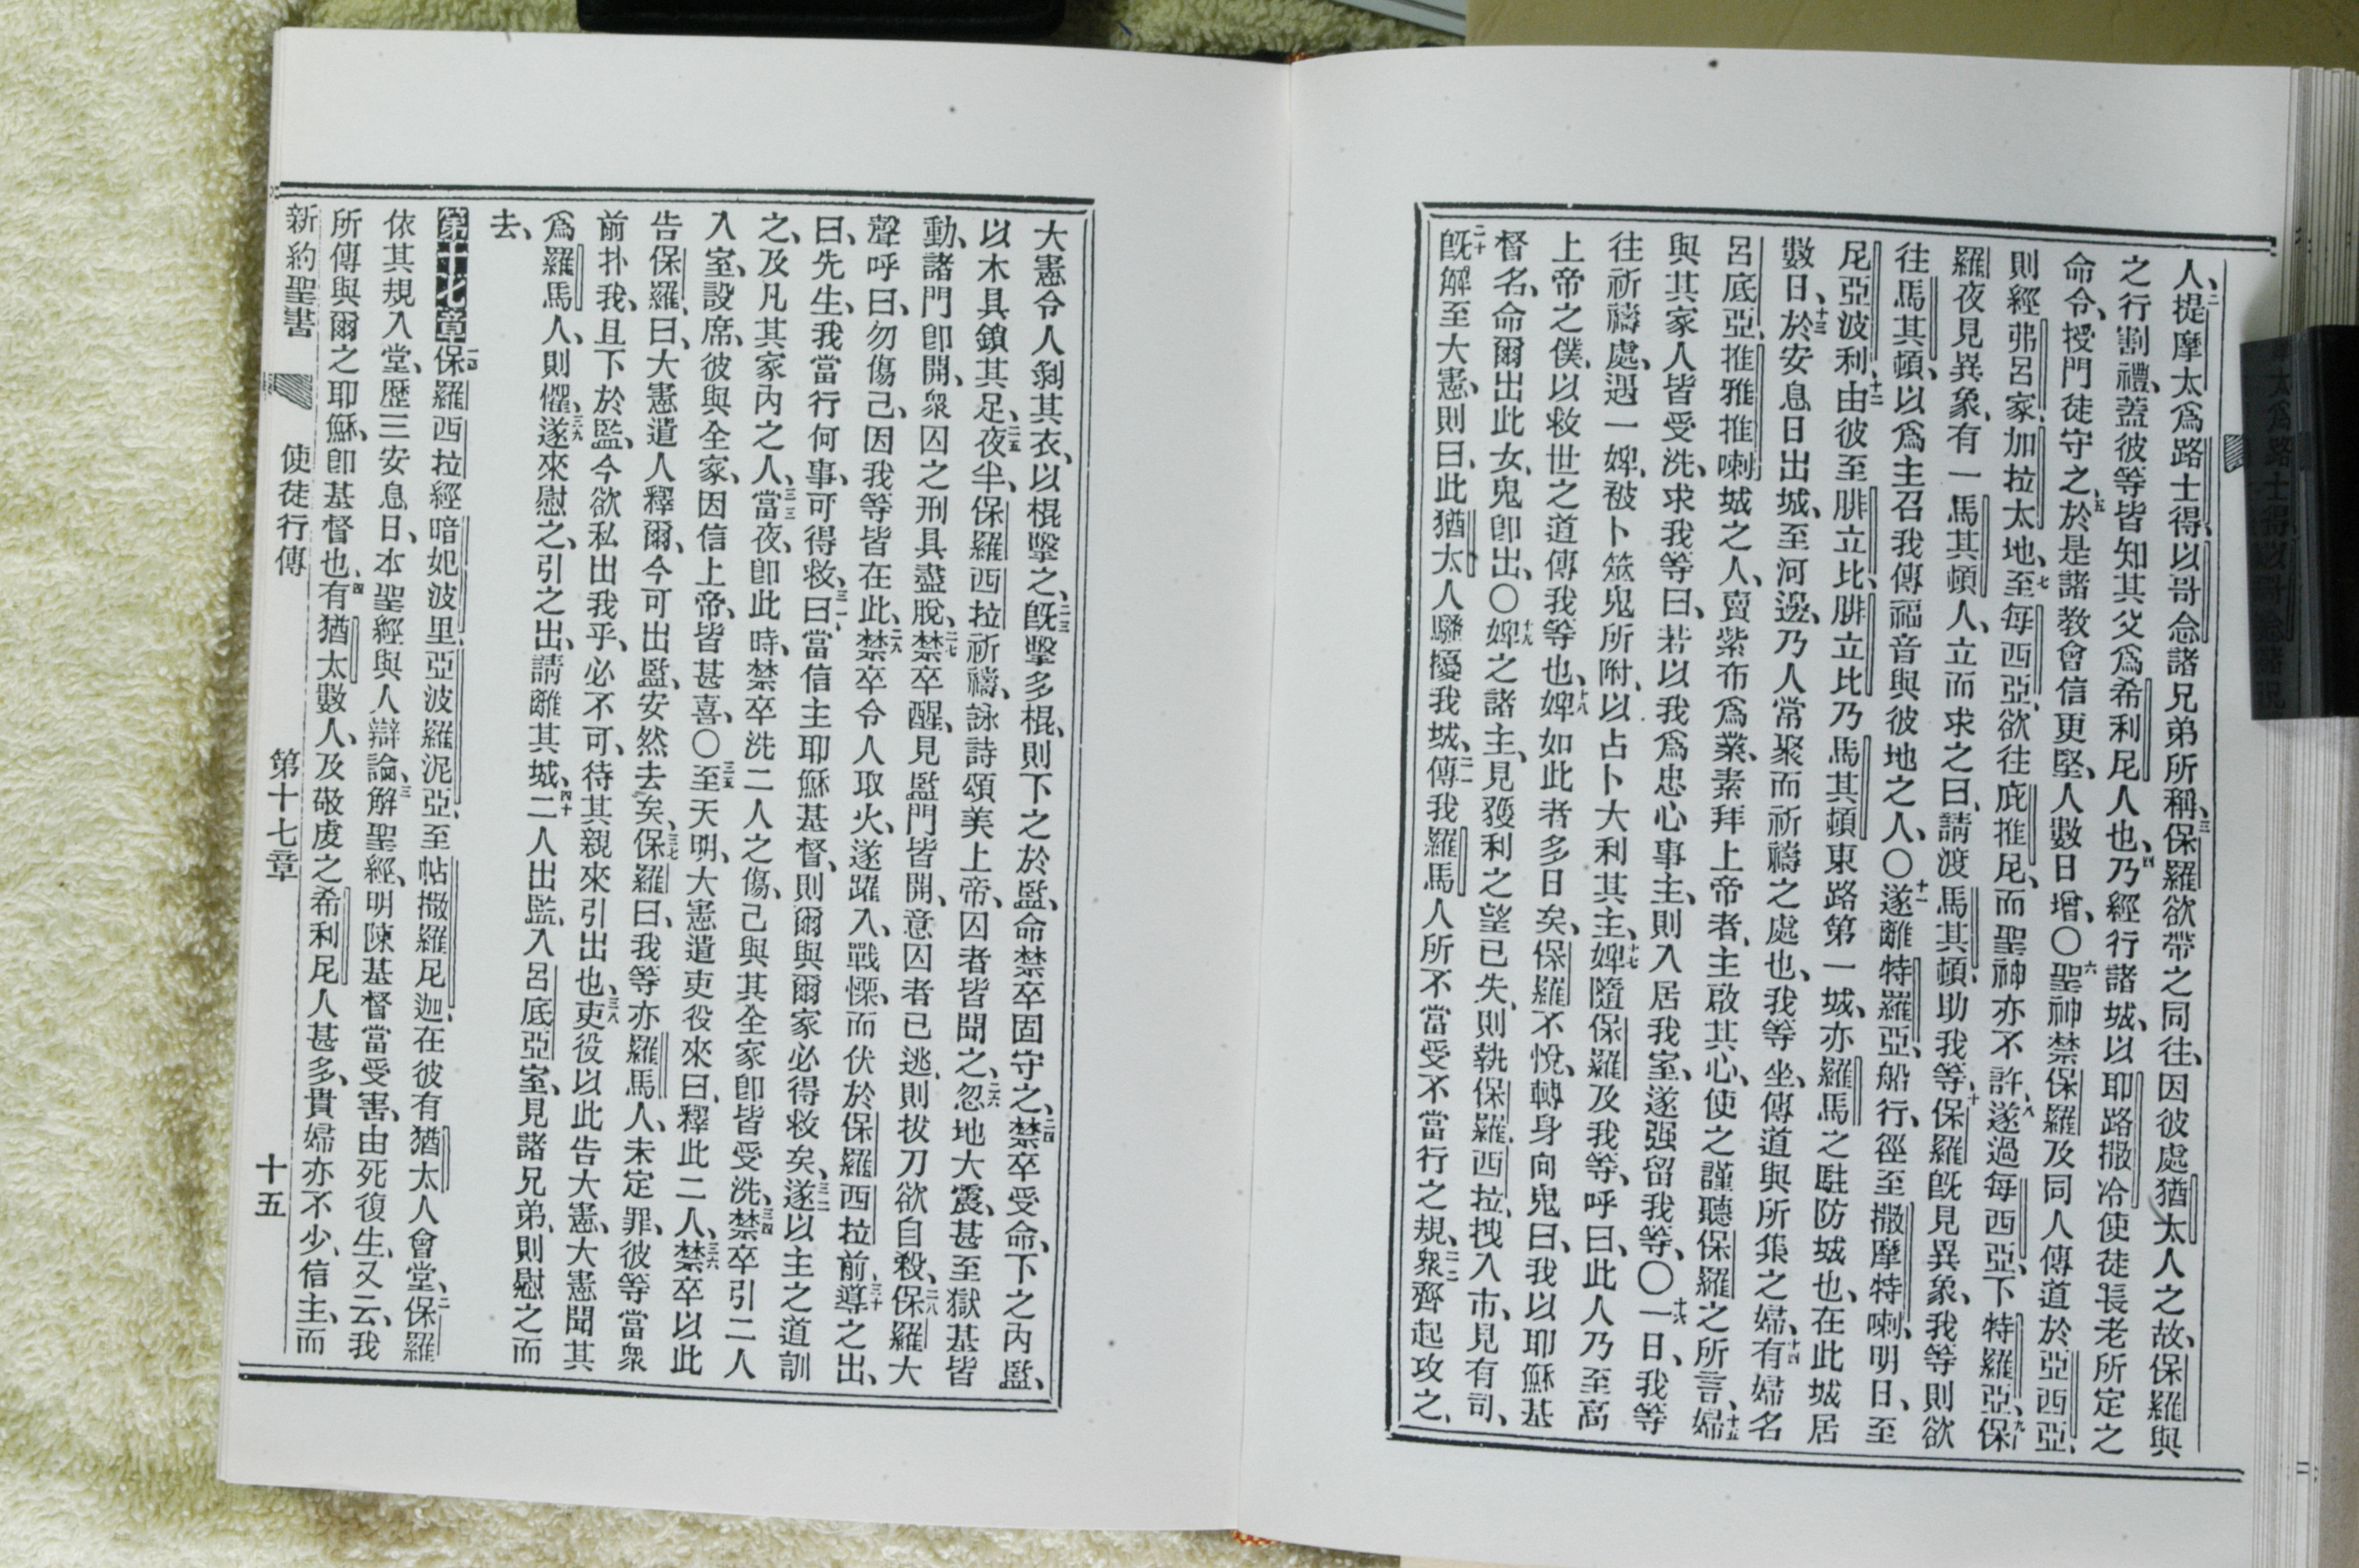 人、二提摩太爲路士得、以哥念諸兄弟所稱、三保羅欲帶之同往、因彼處猶太人之故、保羅與
之行割禮、蓋彼等皆知其父爲希利尼人也、四乃經行諸城、以耶路撒冷使徒長老所定之
命令、授門徒守之、五於是諸教會信更堅、人數日增、〇六聖神禁保羅及同人傳道於亞西亞、
則經弗呂家、加拉太地、七至每西亞、欲往庇推尼、而聖神亦不許、八遂過每西亞、下特羅亞、九保
羅夜見異象、有一馬其頓人、立而求之曰、請渡馬其頓、助我等、十保羅旣見異象、我等則欲
往馬其頓、以爲主召我傳福音與彼地之人、〇十一遂離特羅亞、船行、徑至撒摩特喇、明日、至
尼亞波利、十二由彼至腓立比、腓立比乃馬其頓東路第一城、亦羅馬之駐防城也、在此城居
數日、十三於安息日出城、至河邊、乃人常聚而祈禱之處也、我等坐、傳道與所集之婦、十四有婦名
呂底亞、推雅推喇城之人、賣紫布爲業、素拜上帝者、主啟其心、使之謹聽保羅之所言、十五婦
與其家人皆受洗、求我等曰、若以我爲忠心事主、則入居我室、遂强留我等、〇十六一日、我等
往祈禱處、遇一婢、被卜筮鬼所附、以占卜大利其主、十七婢隨保羅及我等、呼曰、此人乃至高
上帝之僕、以救世之道傳我等也、十八婢如此者多日矣、保羅不悅、轉身向鬼曰、我以耶穌基
督名、命爾出此女、鬼卽出、〇十九婢之諸主、見獲利之望已失、則執保羅、西拉、拽入市、見有司、
二十旣解至大憲、則曰、此猶太人騷擾我城、二一傳我羅馬人所不當受不當行之規、二二衆齊起攻之、
大憲令人剝其衣、以棍擊之、二三旣擊多棍、則下之於監、命禁卒固守之、二四禁卒受命、下之內監、
以木具鎖其足、二五夜半、保羅西拉祈禱、詠詩頌美上帝、囚者皆聞之、二六忽地大震、甚至獄基皆
動、諸門卽開、衆囚之刑具盡脫、二七禁卒醒、見監門皆開、意囚者已逃、則拔刀欲自殺、二八保羅大
聲呼曰、勿傷己、因我等皆在此、二九禁卒令人取火、遂躍入、戰慄、而伏於保羅西拉前、三十導之出、
曰、先生、我當行何事、可得救、三一曰、當信主耶穌基督、則爾與爾家必得救矣、三二遂以主之道訓
之、及凡其家內之人、三三當夜、卽此時、禁卒洗二人之傷、己與其全家卽皆受洗、三四禁卒引二人
入室、設席、彼與全家、因信上帝、皆甚喜、〇三五至天明、大憲遣吏役來曰、釋此二人、三六禁卒以此
告保羅、曰、大憲遣人釋爾、今可出監、安然去矣、三七保羅曰、我等亦羅馬人、未定罪、彼等當衆
前扑我、且下於監、今欲私出我乎、必不可、待其親來引出也、三八吏役以此告大憲、大憲聞其
爲羅馬人、則懼、三九遂來慰之、引之出、請離其城、四十二人出監、入呂底亞室、見諸兄弟、則慰之而
去、
第十七章一保羅西拉經暗妃波里、亞波羅泥亞、至帖撒羅尼迦、在彼有猶太人會堂、二保羅
依其規入堂、歷三安息日、本聖經與人辯論、三解聖經、明陳基督當受害、由死復生、又云、我
所傳與爾之耶穌、卽基督也、四有猶太數人、及敬虔之希利尼人甚多、貴婦亦不少、信主、而
新約聖書　使徒行傳　第十七章　十五